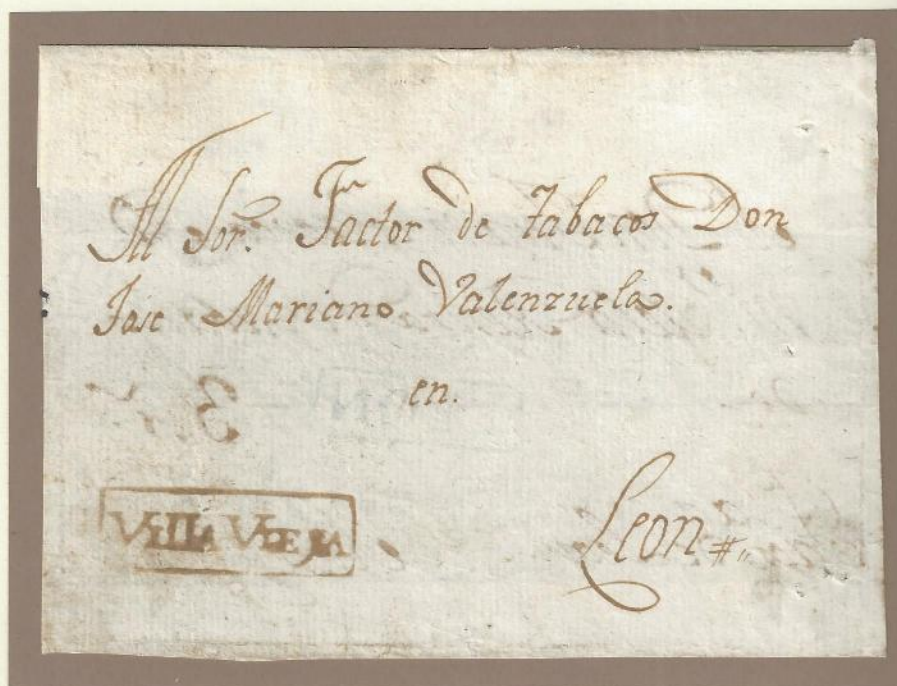 Al Sor. Factor de tabacos Don
Jose Mariano Valenzuela.
en.
3
VILLA VIEJA
Leon